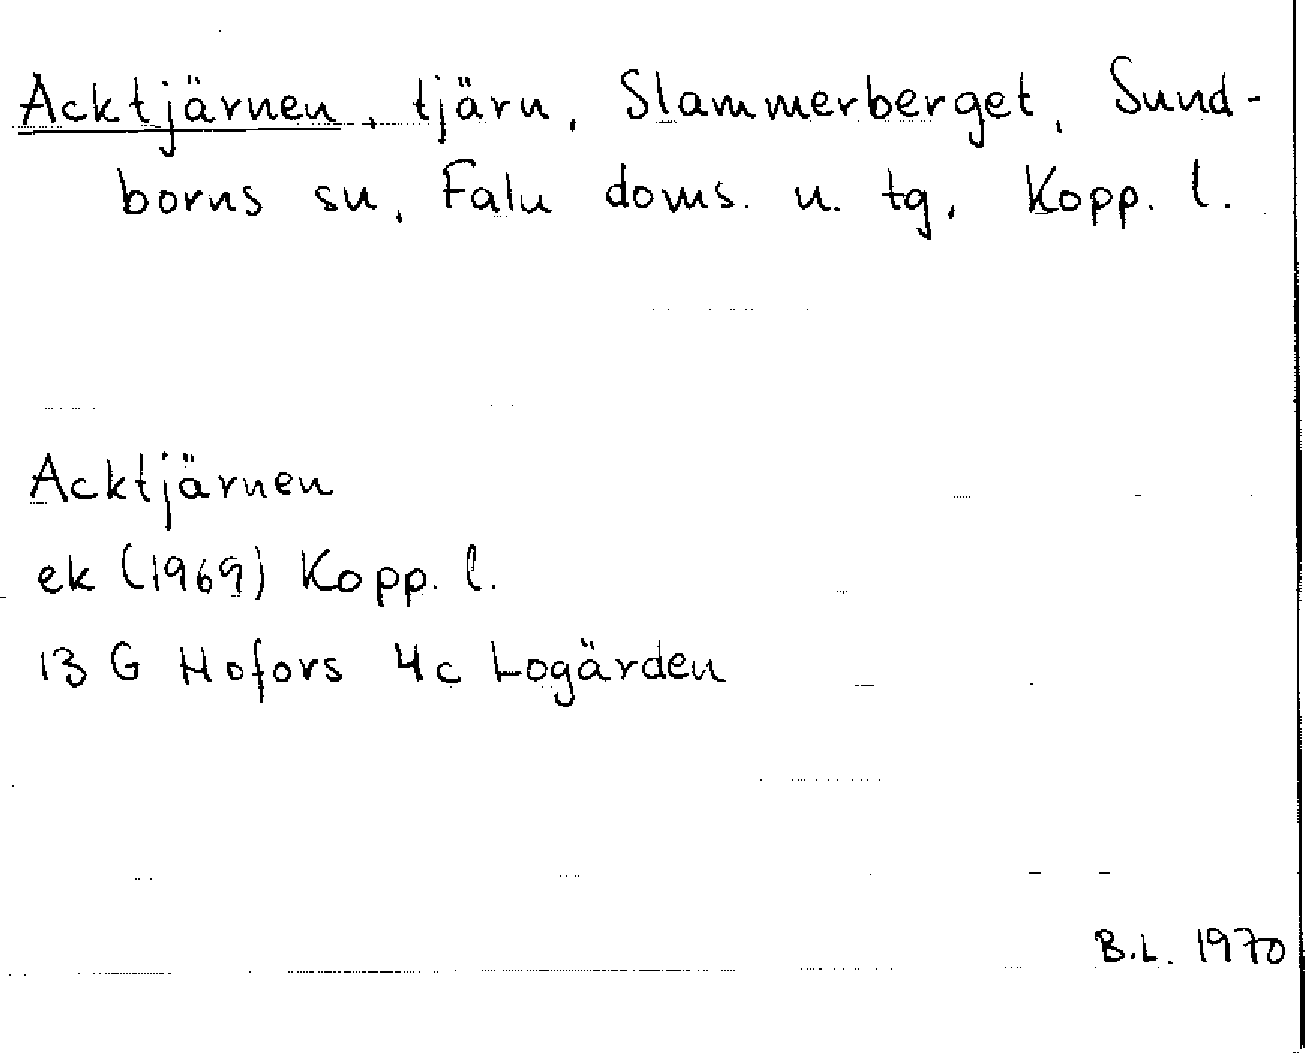 Acktjärnen, tjärn, Slammerberget, Sund-
borns sn, Falu doms. n. tg, Kopp. l.
Acktjärnen
ek (1969) Kopp. l.
13 G Hofors 4c Logärden
B.L. 1970